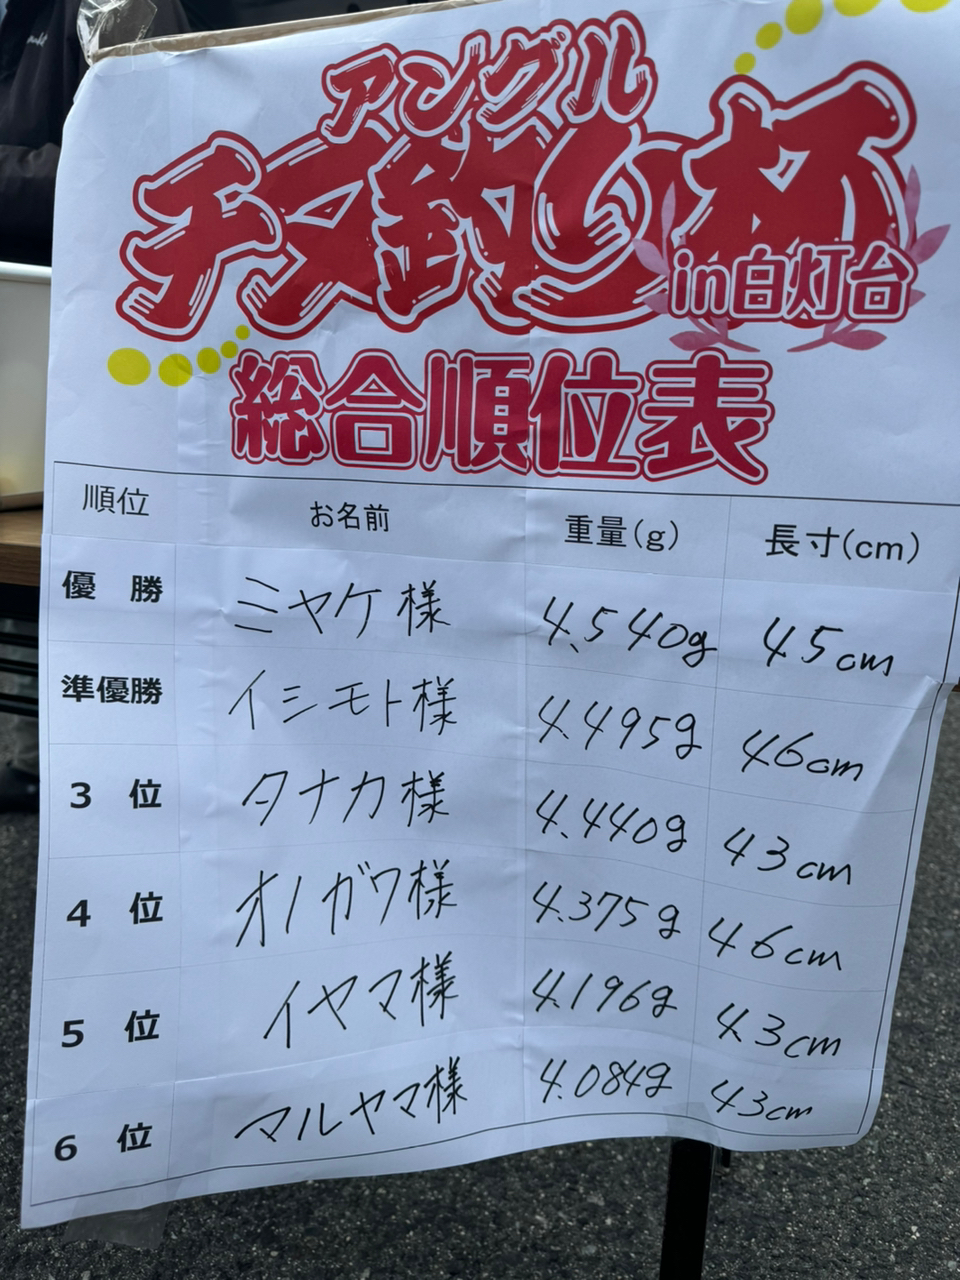 アングル
チヌ釣り杯
in白灯台
総合順位表
順位 お名前 重量(g) 長寸(cm)
優勝 ミヤケ様 4.540g 45cm
準優勝 イシモト様 4.495g 46cm
3位 タナカ様 4.440g 43cm
4位 オノガワ様 4.375g 46cm
5位 イヤマ様 4.196g 43cm
6位 マルヤマ様 4.084g 43cm